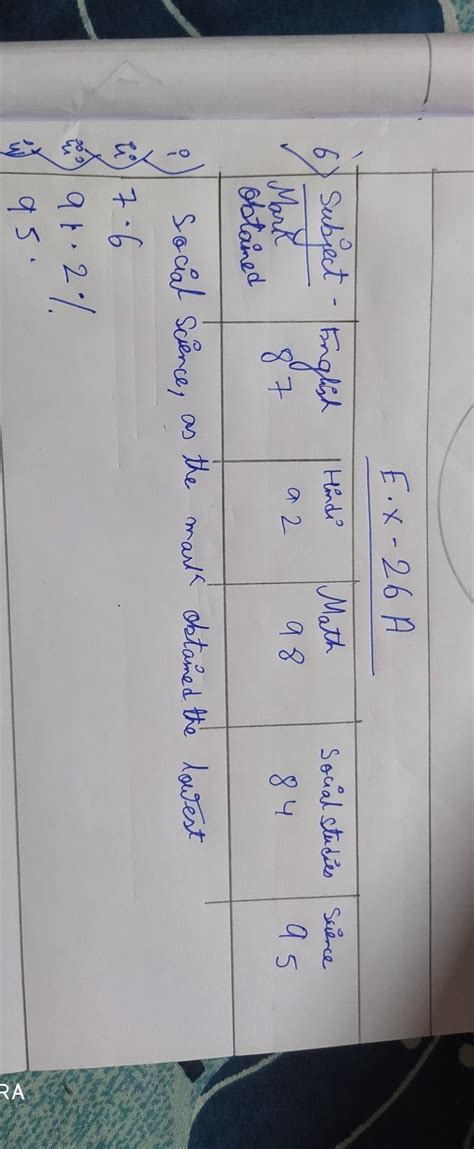 E.x - 26A
6) Subject - English Hindi Math Social studies Science
Mark obtained 87 92 98 84 95
i) Social Science, as the mark obtained the lowest
ii) 7.6
iii) 91.2%.
iv) 95.
RA